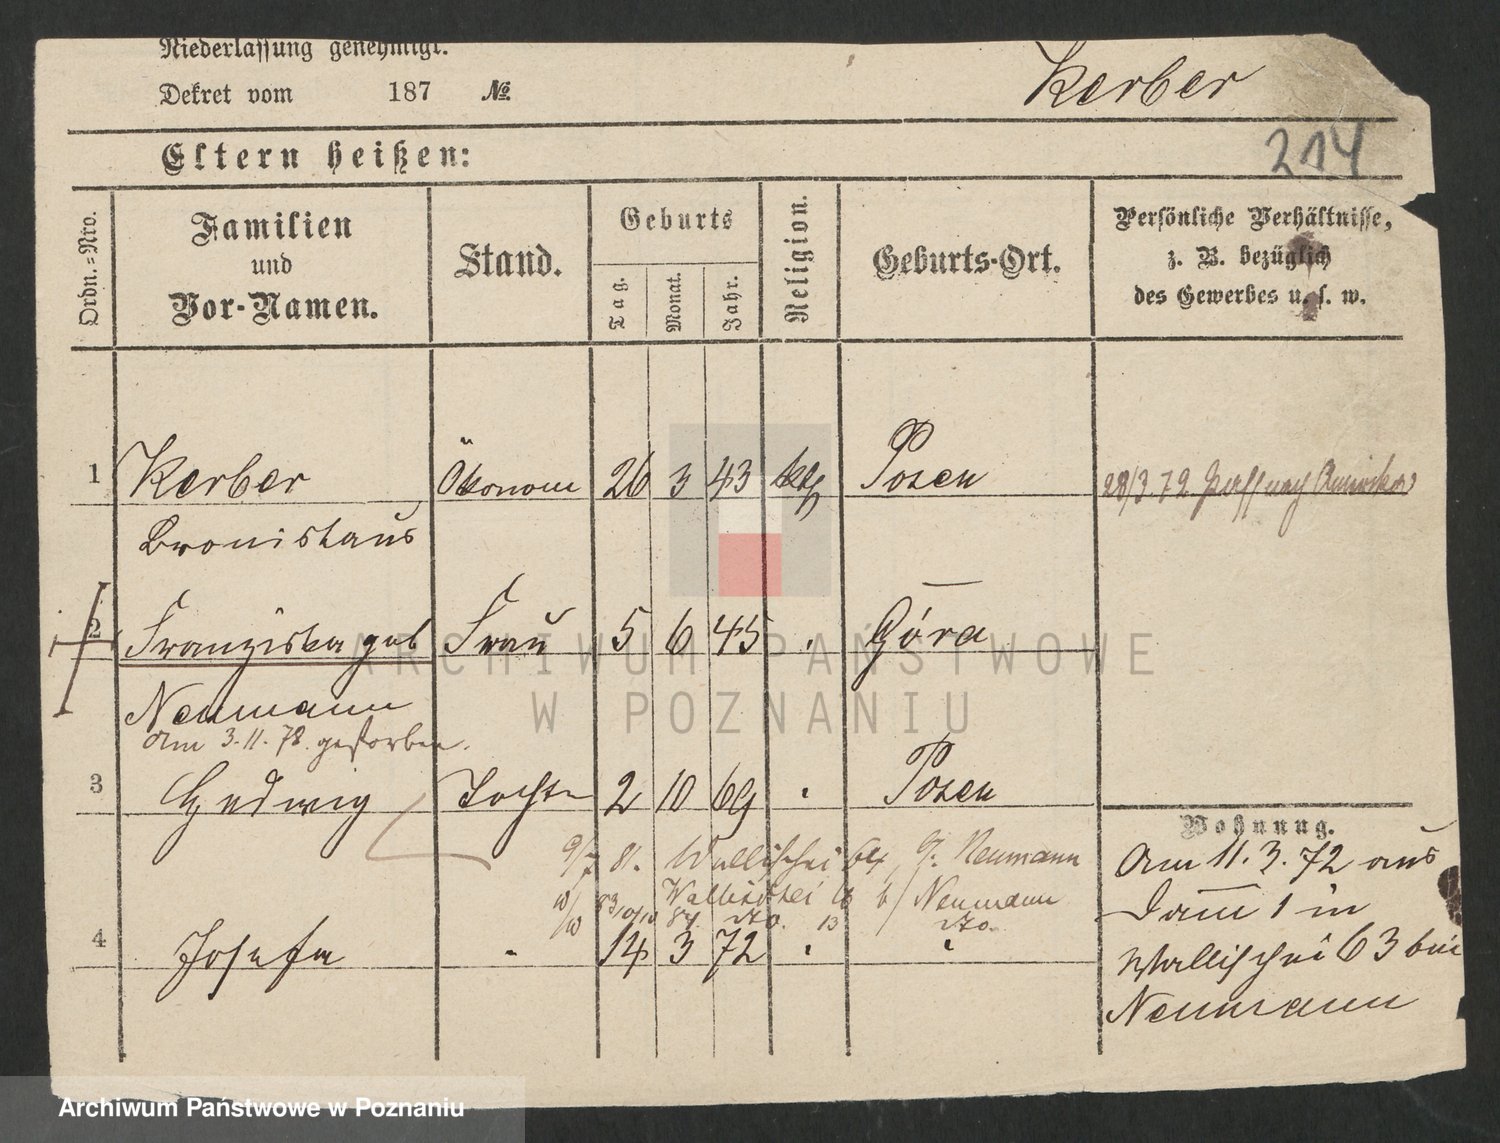 Niederlassung genehmigt.
Dekret vom 187 №.
Kerber
214
Eltern heißen:
Ordn.=Nro.
Familien
und
Vor-Namen.
Stand.
Geburts
Tag.
Monat.
Jahr.
Religion.
Geburts-Ort.
Persönliche Verhältnisse,
z. B. bezüglich
des Gewerbes u. s. w.
1 Kerber Ökonom 26 3 43 kth Posen 28/3.72 Paß nach Amerika
Bronislaus
2 Franziska geb Frau 5 6 45 " Góra
Neumann
am 3.11.78. gestorben.
3 Hedwig Tochter 2 10 69 " Posen
9/7 81. Wallischei 64, Neumann
Wallischei b/ Neumann
4 Josefa " 14 3 72 " "
Wohnung.
Am 11.3.72 aus
Damm 1 in
Wallischei 63 bei
Neumann
ARCHIWUM PAŃSTWOWE
W POZNANIU
Archiwum Państwowe w Poznaniu